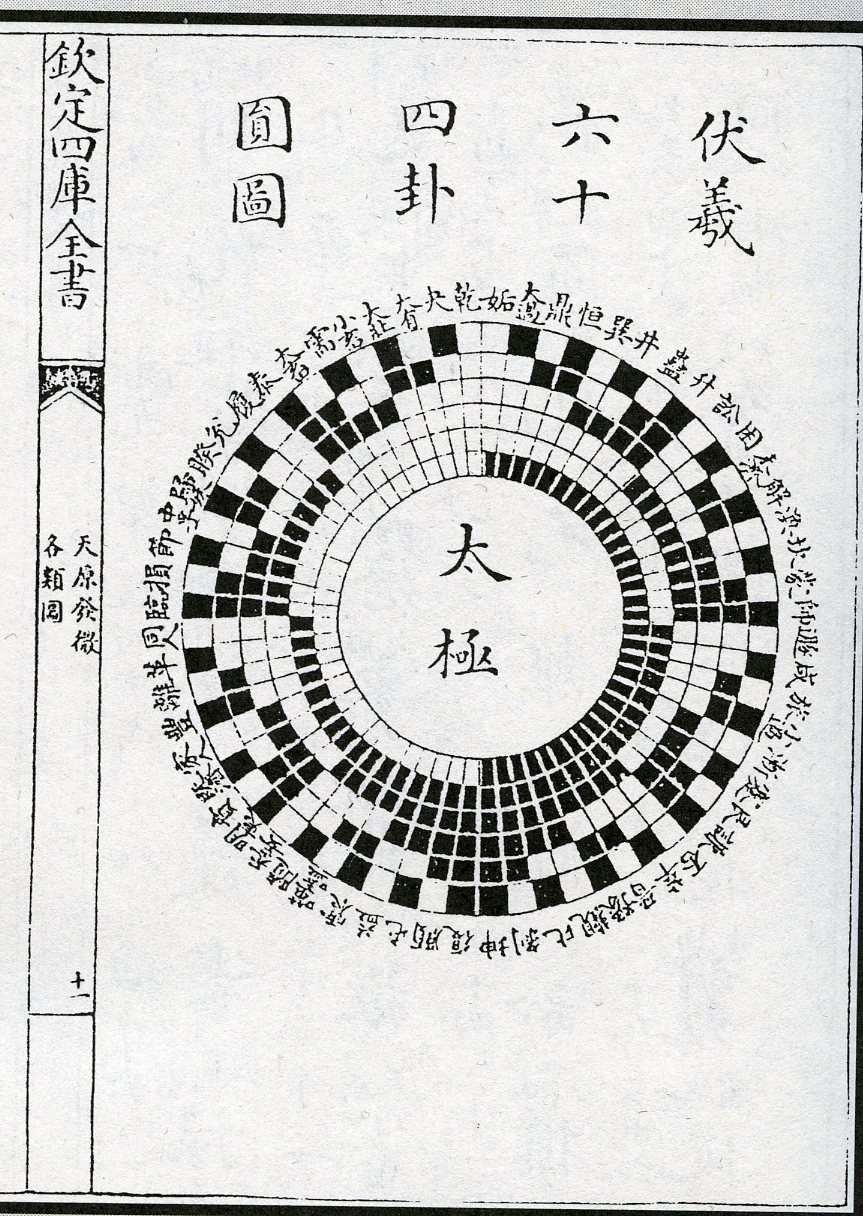 伏羲
六十
四卦
圓圖
乾夬大有大壯小畜需大畜泰履兌睽歸妹中孚節損臨同人革離豐家人既濟賁明夷无妄隨噬嗑震益屯頤復
姤大過鼎恒巽井蠱升訟困未濟解渙坎蒙師遯咸旅小過漸蹇艮謙否萃晉豫觀比剥坤
太極
欽定四庫全書
天原發微
各類圖
十一